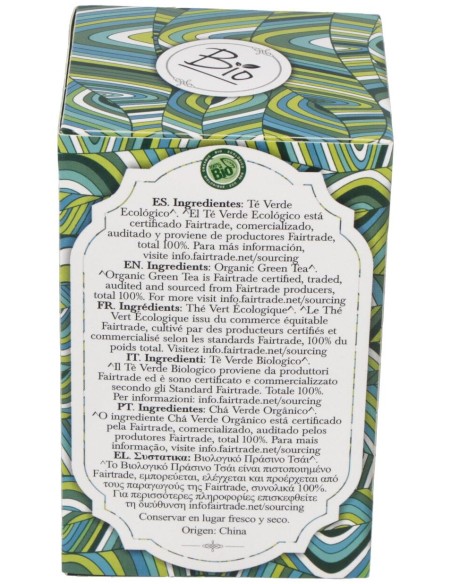 Bio
Bio
ES. Ingredientes: Té Verde
Ecológico^. ^El Té Verde Ecológico está
certificado Fairtrade, comercializado,
auditado y proviene de productores Fairtrade,
total 100%. Para más información,
visite info.fairtrade.net/sourcing
EN. Ingredients: Organic Green Tea^.
^Organic Green Tea is Fairtrade certified, traded,
audited and sourced from Fairtrade producers,
total 100%. For more visit info.fairtrade.net/sourcing
FR. Ingrédients: Thé Vert Ecologique^. ^Le Thé
Vert Ecologique issu du commerce équitable
Fairtrade, cultivé par des producteurs certifiés et
commercialisé selon les standards Fairtrade, 100% du
poids total. Visitez info.fairtrade.net/sourcing
IT. Ingredienti: Tè Verde Biologico^.
^Il Tè Verde Biologico proviene da produttori
Fairtrade ed è sono certificato e commercializzato
secondo gli Standard Fairtrade. Totale 100%.
Per informazioni: info.fairtrade.net/sourcing
PT. Ingredientes: Chá Verde Orgânico^.
^O ingrediente Chá Verde Orgânico está certificado
pela Fairtrade, comercializado, auditado pelos
produtores Fairtrade, total 100%. Para mais
informação, visite info.fairtrade.net/sourcing
EL. Συστατικα: Βιολογικό Πράσινο Τσάι^.
^Το Βιολογικό Πράσινο Τσάι είναι πιστοποιημένο
Fairtrade, εμπορεύεται, ελέγχεται και προέρχεται από
τους παραγωγής της Fairtrade, συνολικά 100%.
Για περισσότερες πληροφορίες επισκεφθείτε
τη διεύθυνση infofairtrade.net/sourcing
Conservar en lugar fresco y seco.
Origen: China